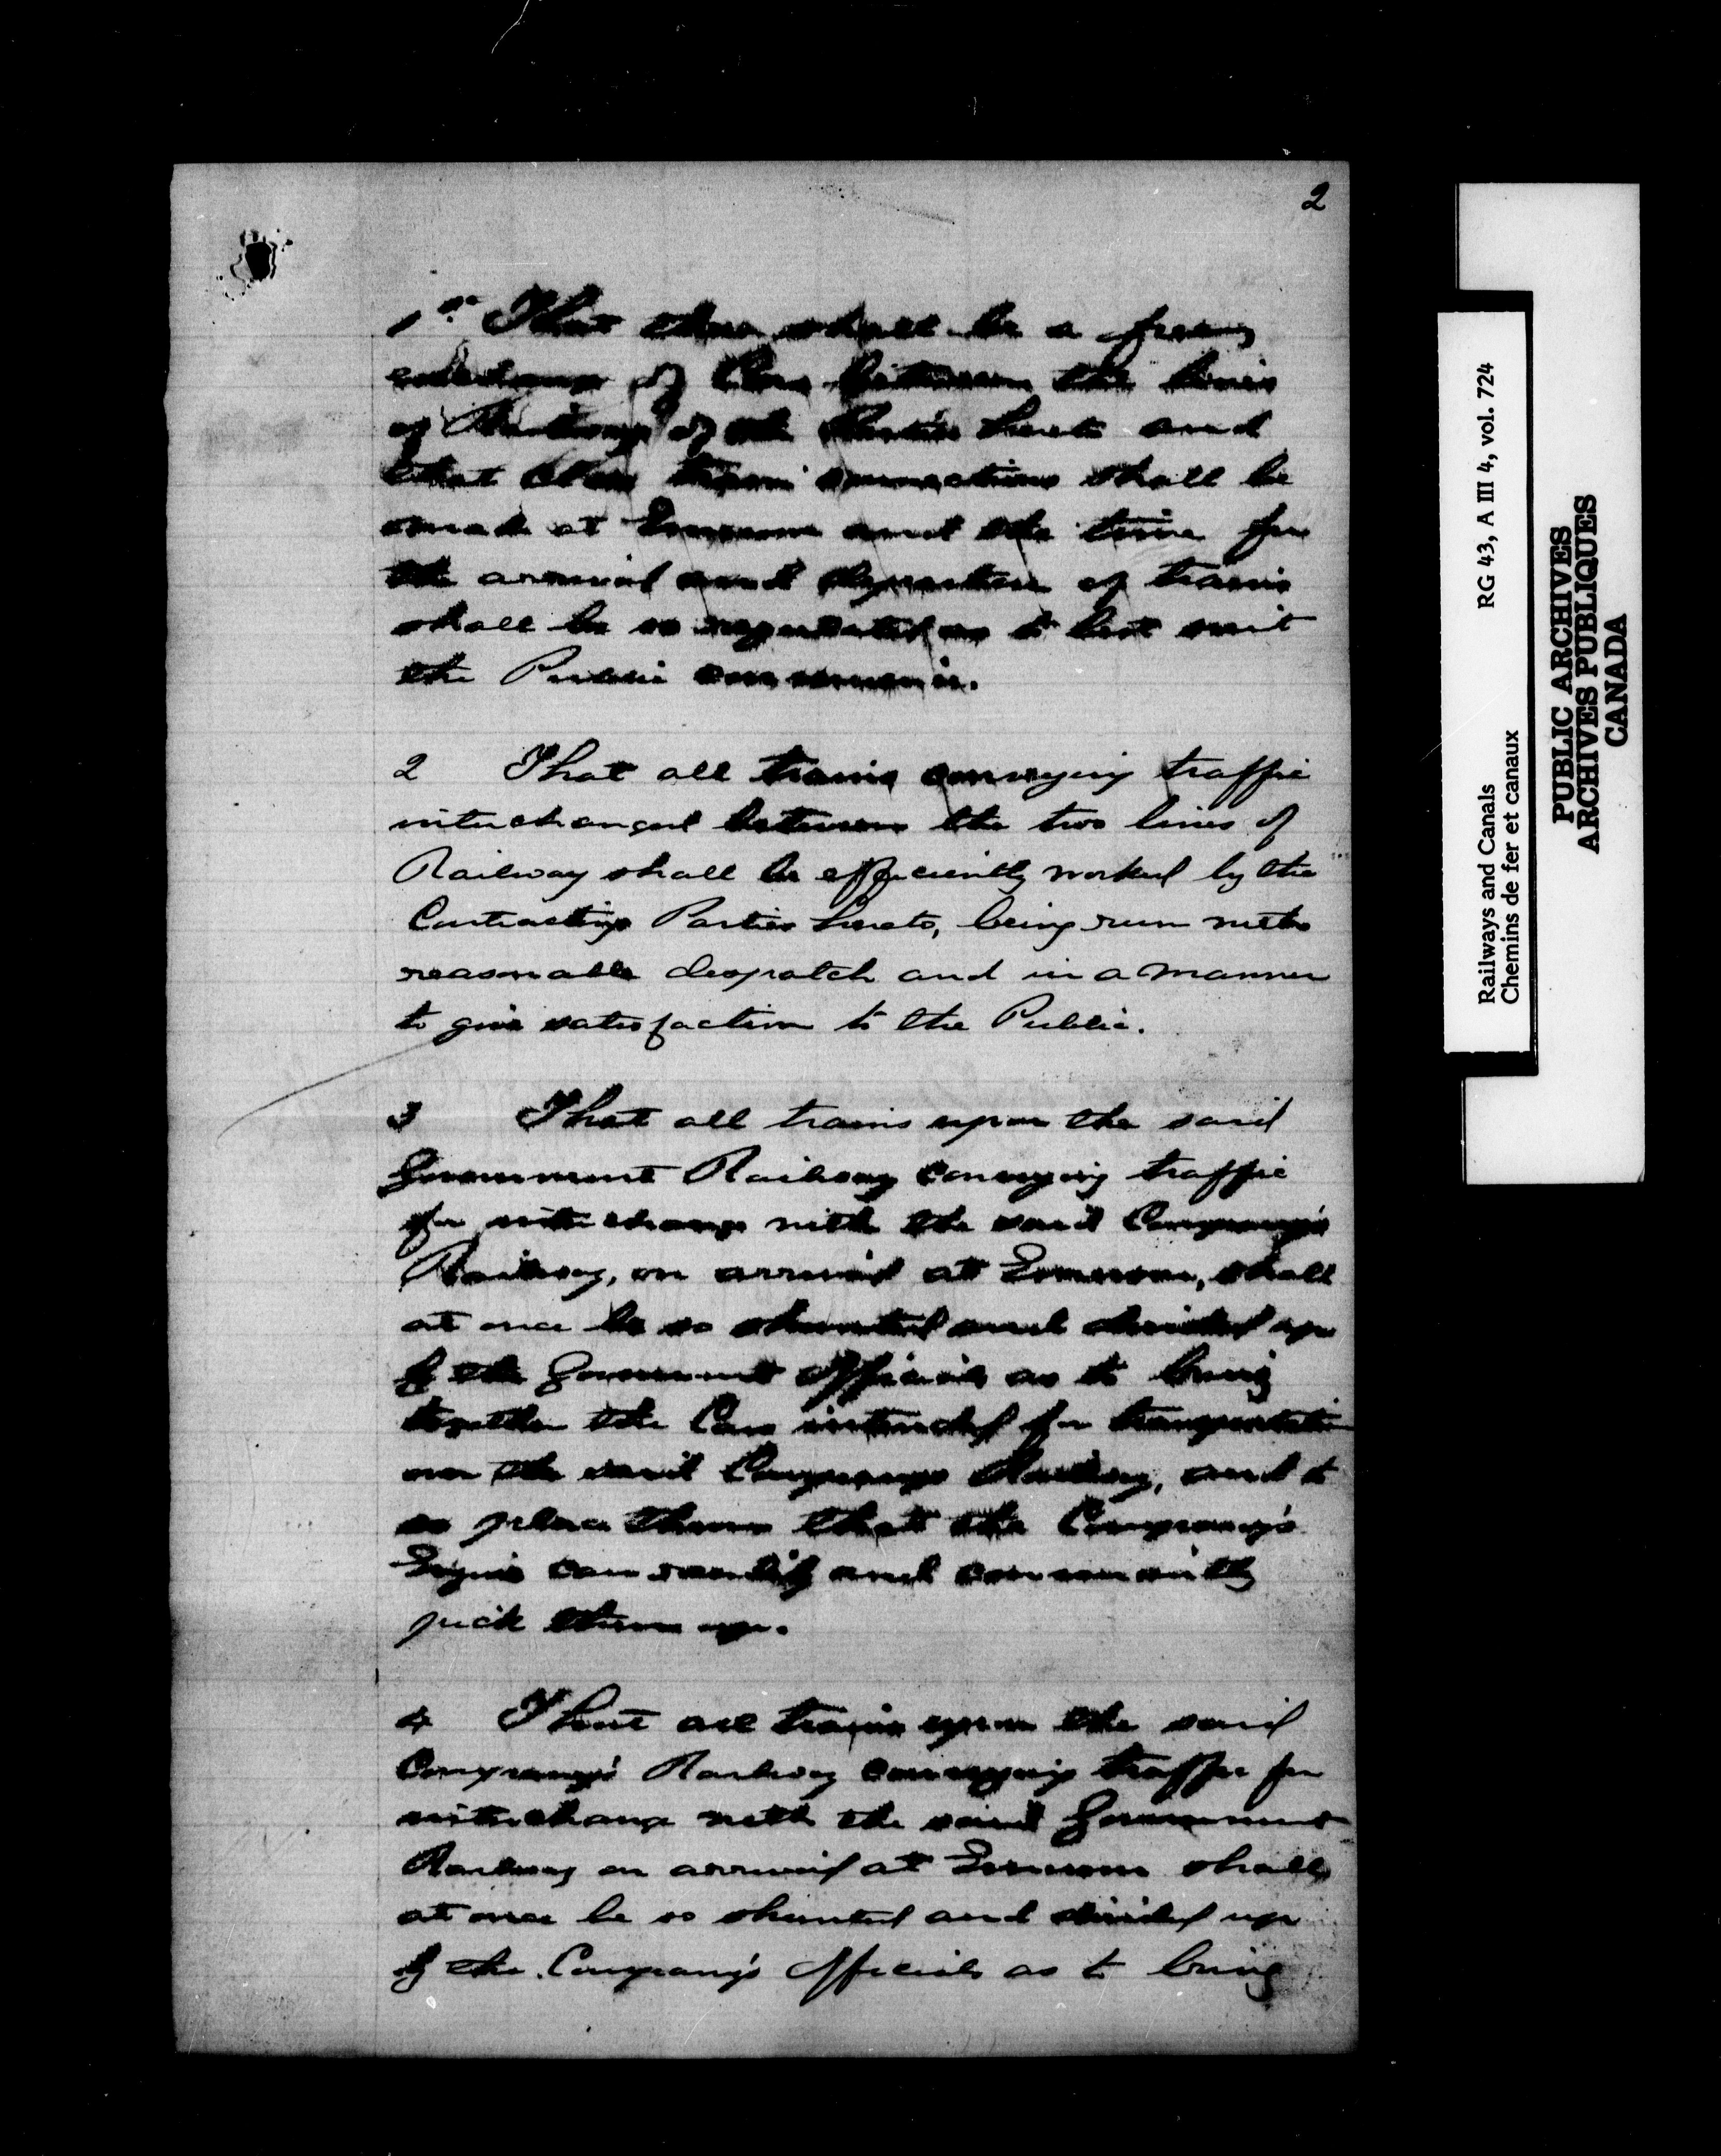 2
1st. That there shall be a free
exchange of Cars between the lines
of Railway of the Parties hereto and
that close train connections shall be
made at Emerson and the time for
the arrival and departure of trains
shall be so regulated as to best suit
the Public convenience.
2 That all trains conveying traffic
interchanged between the two lines of
Railway shall be efficiently worked by the
Contracting Parties hereto, being run with
reasonable despatch and in a manner
to give satisfaction to the Public.
3 That all trains upon the said
Government Railway conveying traffic
for interchange with the said Company's
Railway, on arrival at Emerson, shall
at once be so shunted and divided up
by the Government Officials as to bring
together the Cars intended for transportation
over the said Company's Railway, and to
so place them that the Company's
Engine can readily and conveniently
pick them up.
4 That all trains upon the said
Company's Railway conveying traffic for
interchange with the said Government
Railway on arrival at Emerson shall
at once be so shunted and divided up
by the Company's Officials as to bring
Railways and Canals RG 43, A III 4, vol. 724
Chemins de fer et canaux
PUBLIC ARCHIVES
ARCHIVES PUBLIQUES
CANADA